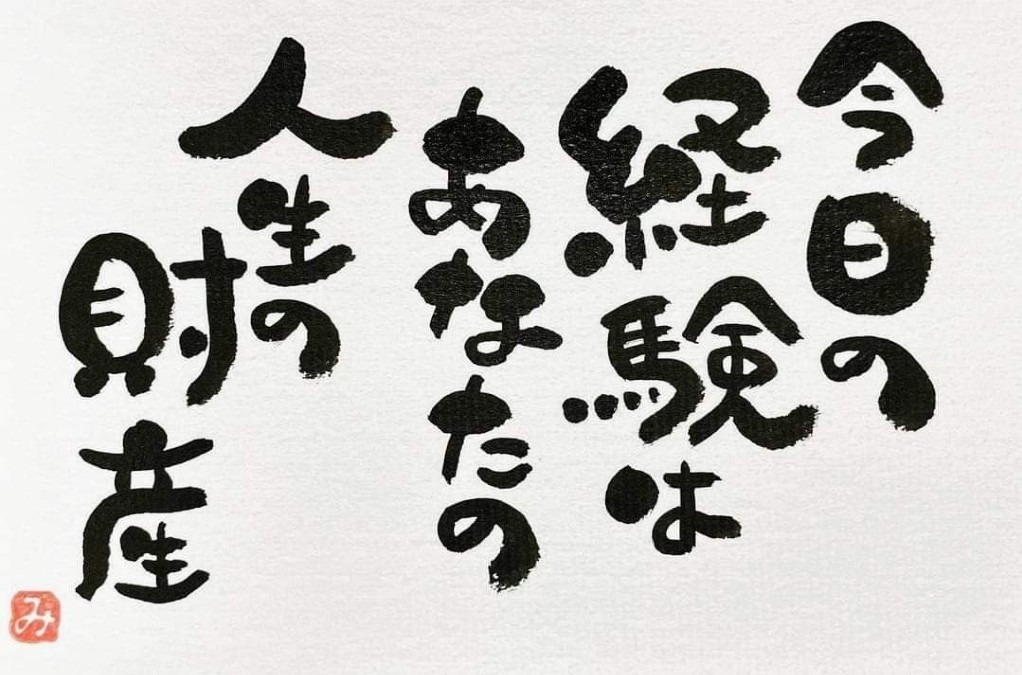 今日の
経験は
あなたの
人生の
財産
み